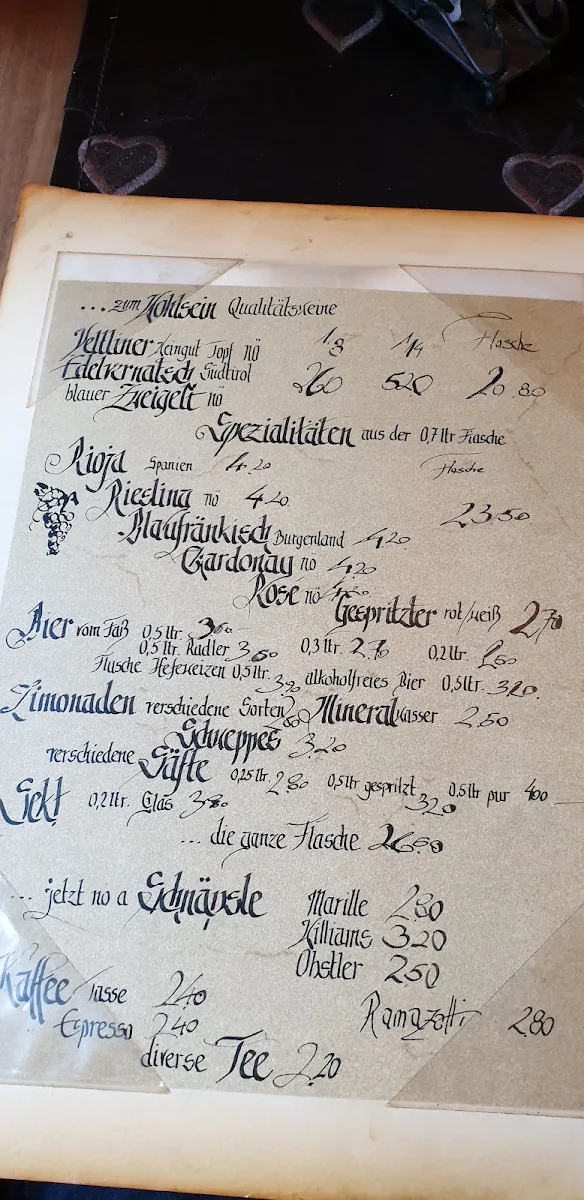 ...zum Wohlsein Qualitätsweine
Veltliner Weingut Topf NÖ 1/8 1/4 Flasche
Edelvernatsch Südtirol 260 520 20.80
blauer Zweigelt NÖ
Spezialitäten aus der 0,7 ltr Flasche
Rioja Spanien 4.20 Flasche
Riesling NÖ 4.20
Blaufränkisch Burgenland 4.20 23.50
Chardonay NÖ 4.20
Rose NÖ
Gespritzter rot/weiß 2.70
Bier vom Faß 0,5 ltr. 360
0,5 ltr. Radler 3,60 0,3 ltr. 2.70 0,2 ltr.
Flasche Hefeweizen 0,5 ltr. alkoholfreies Bier 0,5 ltr. 3.20.
Limonaden verschiedene Sorten Mineralwasser 2.50
Schweppes 3.20
verschiedene Säfte 0,25 ltr. 2.80 0,5 ltr gespritzt 3.20 0,5 ltr pur 400
Sekt 0,2 ltr. Glas 380
... die ganze Flasche 26.50
... jetzt no a Schnäpsle Marille 280
Williams 320
Obstler 250
Kaffee Tasse 240
Ramazotti 2.80
Espresso 240
diverse Tee 2.20